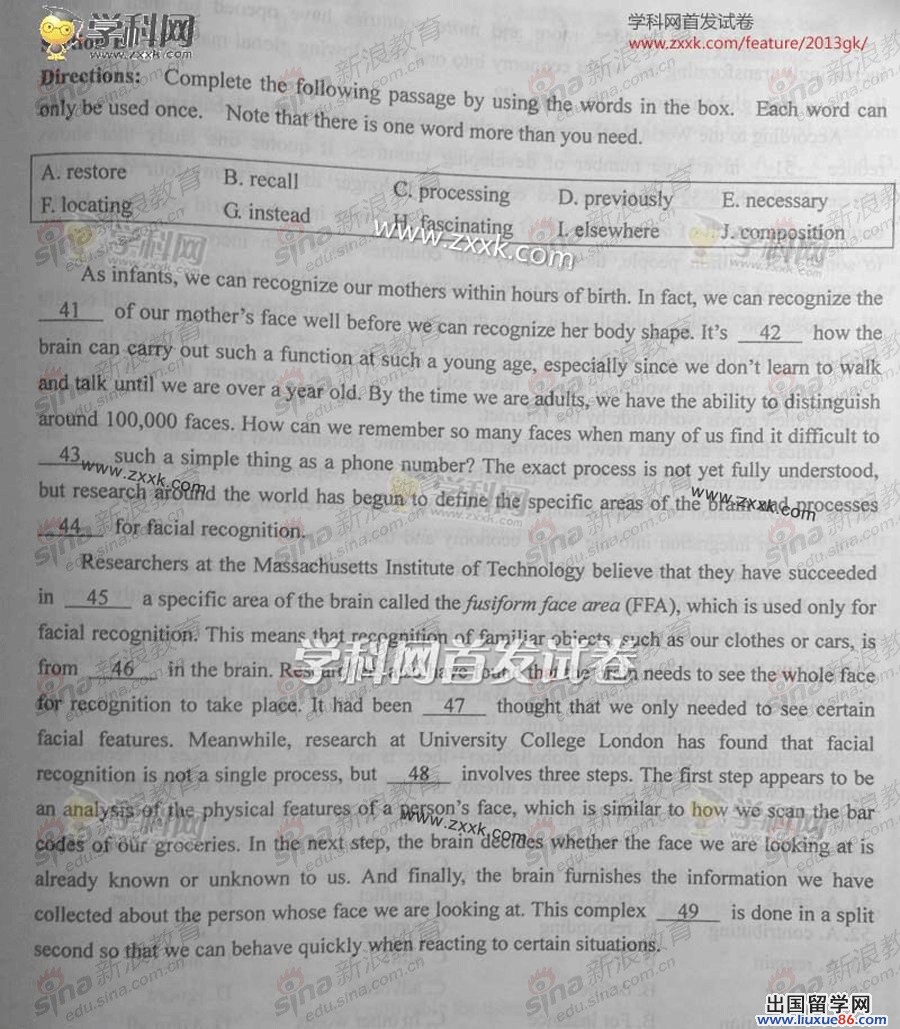 学科网
www.zxxk.com
学科网首发试卷
www.zxxk.com/feature/2013gk/
Directions: Complete the following passage by using the words in the box. Each word can
only be used once. Note that there is one word more than you need.
A. restore B. recall C. processing D. previously E. necessary
F. locating G. instead H. fascinating I. elsewhere J. composition
www.zxxk.com
学科网
zxxk.com
As infants, we can recognize our mothers within hours of birth. In fact, we can recognize the
41 of our mother's face well before we can recognize her body shape. It's 42 how the
brain can carry out such a function at such a young age, especially since we don't learn to walk
and talk until we are over a year old. By the time we are adults, we have the ability to distinguish
around 100,000 faces. How can we remember so many faces when many of us find it difficult to
43 such a simple thing as a phone number? The exact process is not yet fully understood,
www.zxxk.com
学科网
zxxk.com
www.zxxk.com
but research around the world has begun to define the specific areas of the brain and processes
44 for facial recognition.
Researchers at the Massachusetts Institute of Technology believe that they have succeeded
in 45 a specific area of the brain called the fusiform face area (FFA), which is used only for
facial recognition. This means that recognition of familiar objects, such as our clothes or cars, is
学科网首发试卷
from 46 in the brain. needs to see the whole face
for recognition to take place. It had been 47 thought that we only needed to see certain
facial features. Meanwhile, research at University College London has found that facial
recognition is not a single process, but 48 involves three steps. The first step appears to be
an analysis of the physical features of a person's face, which is similar to how we scan the bar
www.zxxk.com
codes of our groceries. In the next step, the brain decides whether the face we are looking at is
already known or unknown to us. And finally, the brain furnishes the information we have
collected about the person whose face we are looking at. This complex 49 is done in a split
second so that we can behave quickly when reacting to certain situations.
sina 新浪教育
edu.sina.com.cn
出国留学网
www.liuxue86.com